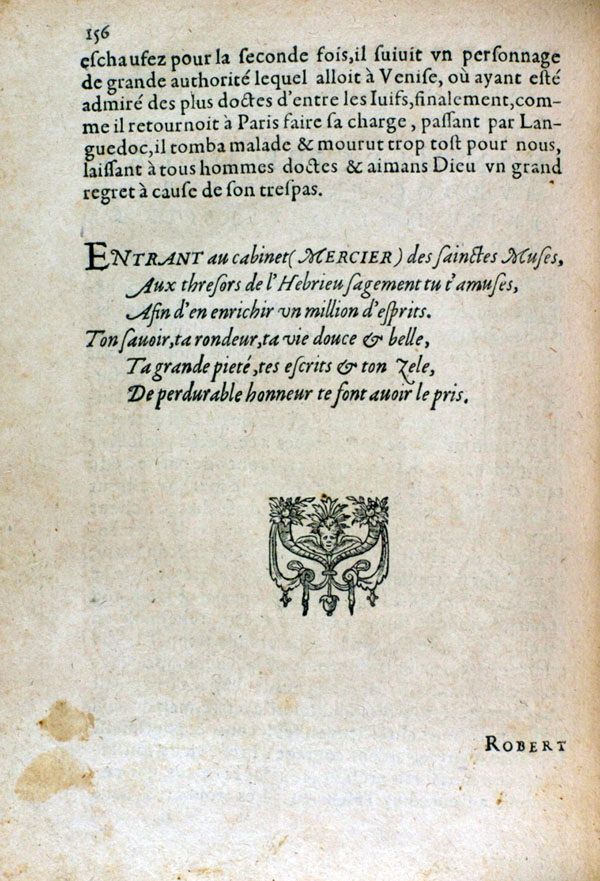 156
eschaufez pour la seconde fois, il suiuit vn personnage
de grande authorité lequel alloit à Venise, où ayant esté
admiré des plus doctes d'entre les Iuifs, finalement, com-
me il retournoit à Paris faire sa charge, passant par Lan-
guedoc, il tomba malade & mourut trop tost pour nous,
laissant à tous hommes doctes & aimans Dieu vn grand
regret à cause de son trespas.
ENTRANT au cabinet (MERCIER) des sainctes Muses,
Aux thresors de l'Hebrieu sagement tu t'amuses,
Afin d'en enrichir vn million d'esprits.
Ton sauoir, ta rondeur, ta vie douce & belle,
Ta grande pieté, tes escrits & ton Zele,
De perdurable honneur te font auoir le pris.
ROBERT